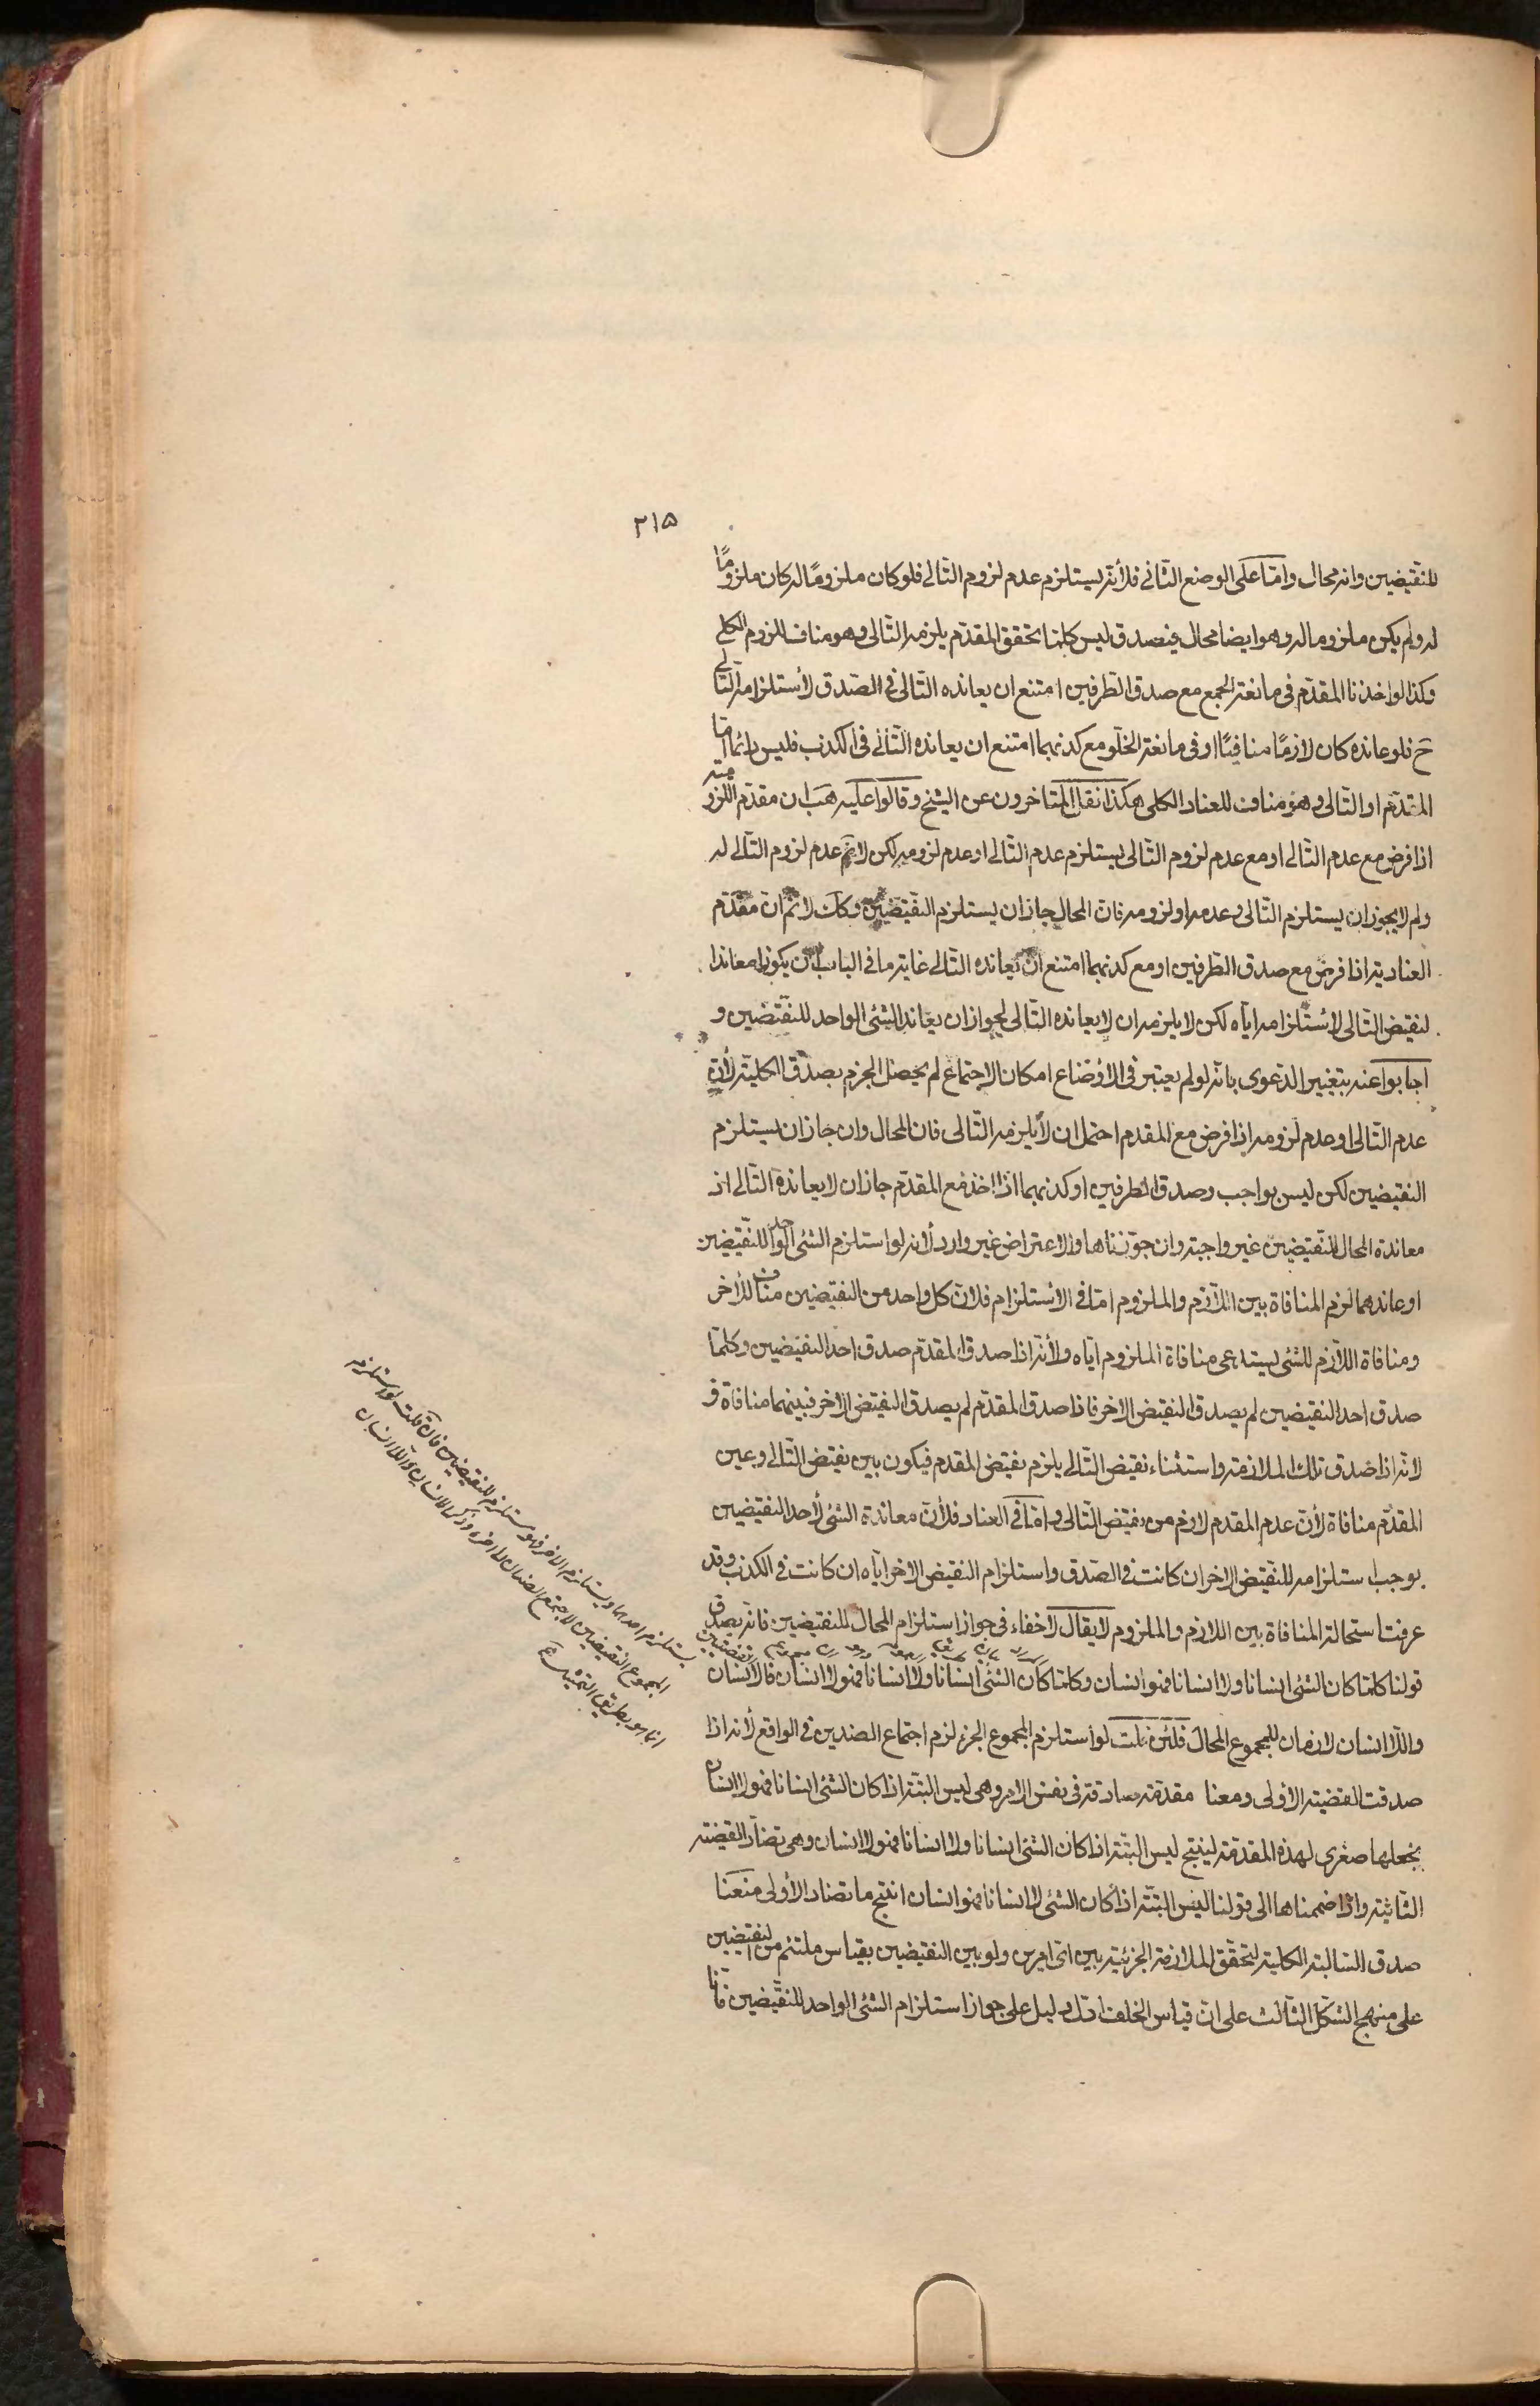 ٢١٥
للنقيضين وانه محال وامّا على الوضع الثانى فلأنّه يستلزم عدم لزوم التالى فلو كان ملزومًا له كان ملزومًا
له ولم يكن ملزوما له وهو ايضا محال فيصدق ليس كلما تحقق المقدّم يلزمه التّالى وهو مناف للزوم الكلى
وكذا لو اخذنا المقدّم فى مانعة الجمع مع صدق الطرفين امتنع ان يعانده التالى فى الصّدق لأستلزامه التّالى
ح فلو عانده كان لازمًا منافيًا او فى مانعة الخلّو مع كذبهما امتنع ان يعانده التّالى فى الكذب فليس دائما امّا
المقدّم او التّالى وهو مناف للعناد الكلى هكذا نقل المتاخرون عن الشيخ وقالوا عليه هب ان مقدّم اللّزوميّة
اذا فرض مع عدم التّالى او مع عدم لزوم التالى يستلزم عدم التّالى او عدم لزومه لكن لا نم عدم لزوم التّالى له
ولم لا يجوز ان يستلزم التّالى وعدمه او لزومه فان المحال جاز ان يستلزم النقيضين وكك لا نم ان مقدّم
العنادية اذا فرض مع صدق الطرفين او مع كذبهما امتنع ان يعانده التالى غاية ما فى الباب ان يكون معاندا
لنقيض التالى لاستلزامه ايّاه لكن لا يلزم ان لا يعانده التّالى لجواز ان يعاند الشئ الواحد للنقيضين و
اجابوا عنه بتغيير الدّعوى بانّه لو لم يعتبر فى الأوضاع امكان الاجتماع لم يحصل الجزم بصدق الكلية لأن
عدم التّالى او عدم لزومه اذا فرض مع المقدم احتمل ان لا يلزمه التّالى فان المحال وان جاز ان يستلزم
النقيضين لكن ليس بواجب وصدق الطرفين او كذبهما اذا اخذ مع المقدّم جاز ان لا يعانده التّالى اذ
معاندة المحال للنقيضين غير واجبة وان جوّزناها والاعتراض غير وارد لأنه لو استلزم الشئ الواحد للنّقيضين
او عاندهما لزم المنافاة بين اللّازم والملزوم امّا فى الاستلزام فلان كل واحد من النقيضين مناف للأخر
ومنافاة اللّازم للشئ يستدعى منافاة الملزوم ايّاه ولأنّه اذا صدق المقدّم صدق احد النقيضين وكلّما
صدق احد النقيضين لم يصدق النقيض الاخر فاذا صدق المقدّم لم يصدق النقيض الاخر فبينهما منافاة و
لانّه اذا صدق تلك الملازمة واستثناء نقيض التالى يلزم نقيض المقدم فيكون بين نقيض التّالى وعين
المقدّم منافاة لأن عدم المقدم لازم من نقيض التّالى وامّا فى العناد فلأن معاندة الشئ لأحد النقيضين
يوجب استلزامه للنّقيض الاخر ان كانت فى الصّدق واستلزام النقيض الاخر ايّاه ان كانت فى الكذب وقد
عرفت استحالة المنافاة بين اللازم والملزوم لا يقال لا خفاء فى جواز استلزام المحال للنقيضين فانّه يصدق
قولنا كلما كان الشئ انسانا ولا انسانا فهو انسان وكلما كان الشئ انسانا ولا انسانا فهو لا انسان فالانسان
واللّا انسان لازمان للمجموع المحال فلئن قلت لو استلزم المجموع الجزء لزم اجتماع الضدين فى الواقع لأنه اذا
صدقت القضية الأولى ومعنا مقدّمة صادقة فى نفس الامر وهى ليس البتّة اذا كان الشئ انسانا فهو لا انسان
نجعلها صغرى لهذه المقدمة لينتج ليس البتّة اذا كان الشئ انسانا ولا انسانا فهو لا انسان وهى تضادّ القضية
الثانية واذا ضممناها الى قولنا ليس البتّة اذا كان الشئ لا انسانا فهو انسان انتج ما تضاد الأولى منعنا
صدق السّالبة الكلية لتحقّق الملازمة الجزئية بين اىّ امرين ولو بين النقيضين بقياس ملتئم من النقيضين
على منهج الشكل الثّالث على ان قياس الخلف ادلّ دليل على جواز استلزام الشئ الواحد للنّقيضين فانّا
يستلزم احدهما ويستلزم الاخر فهو يستلزم للنقيضين فان قلت لو استلزم
المجموع النقيضين لاجتمع الضدان
انما هو بطريق التمثيل